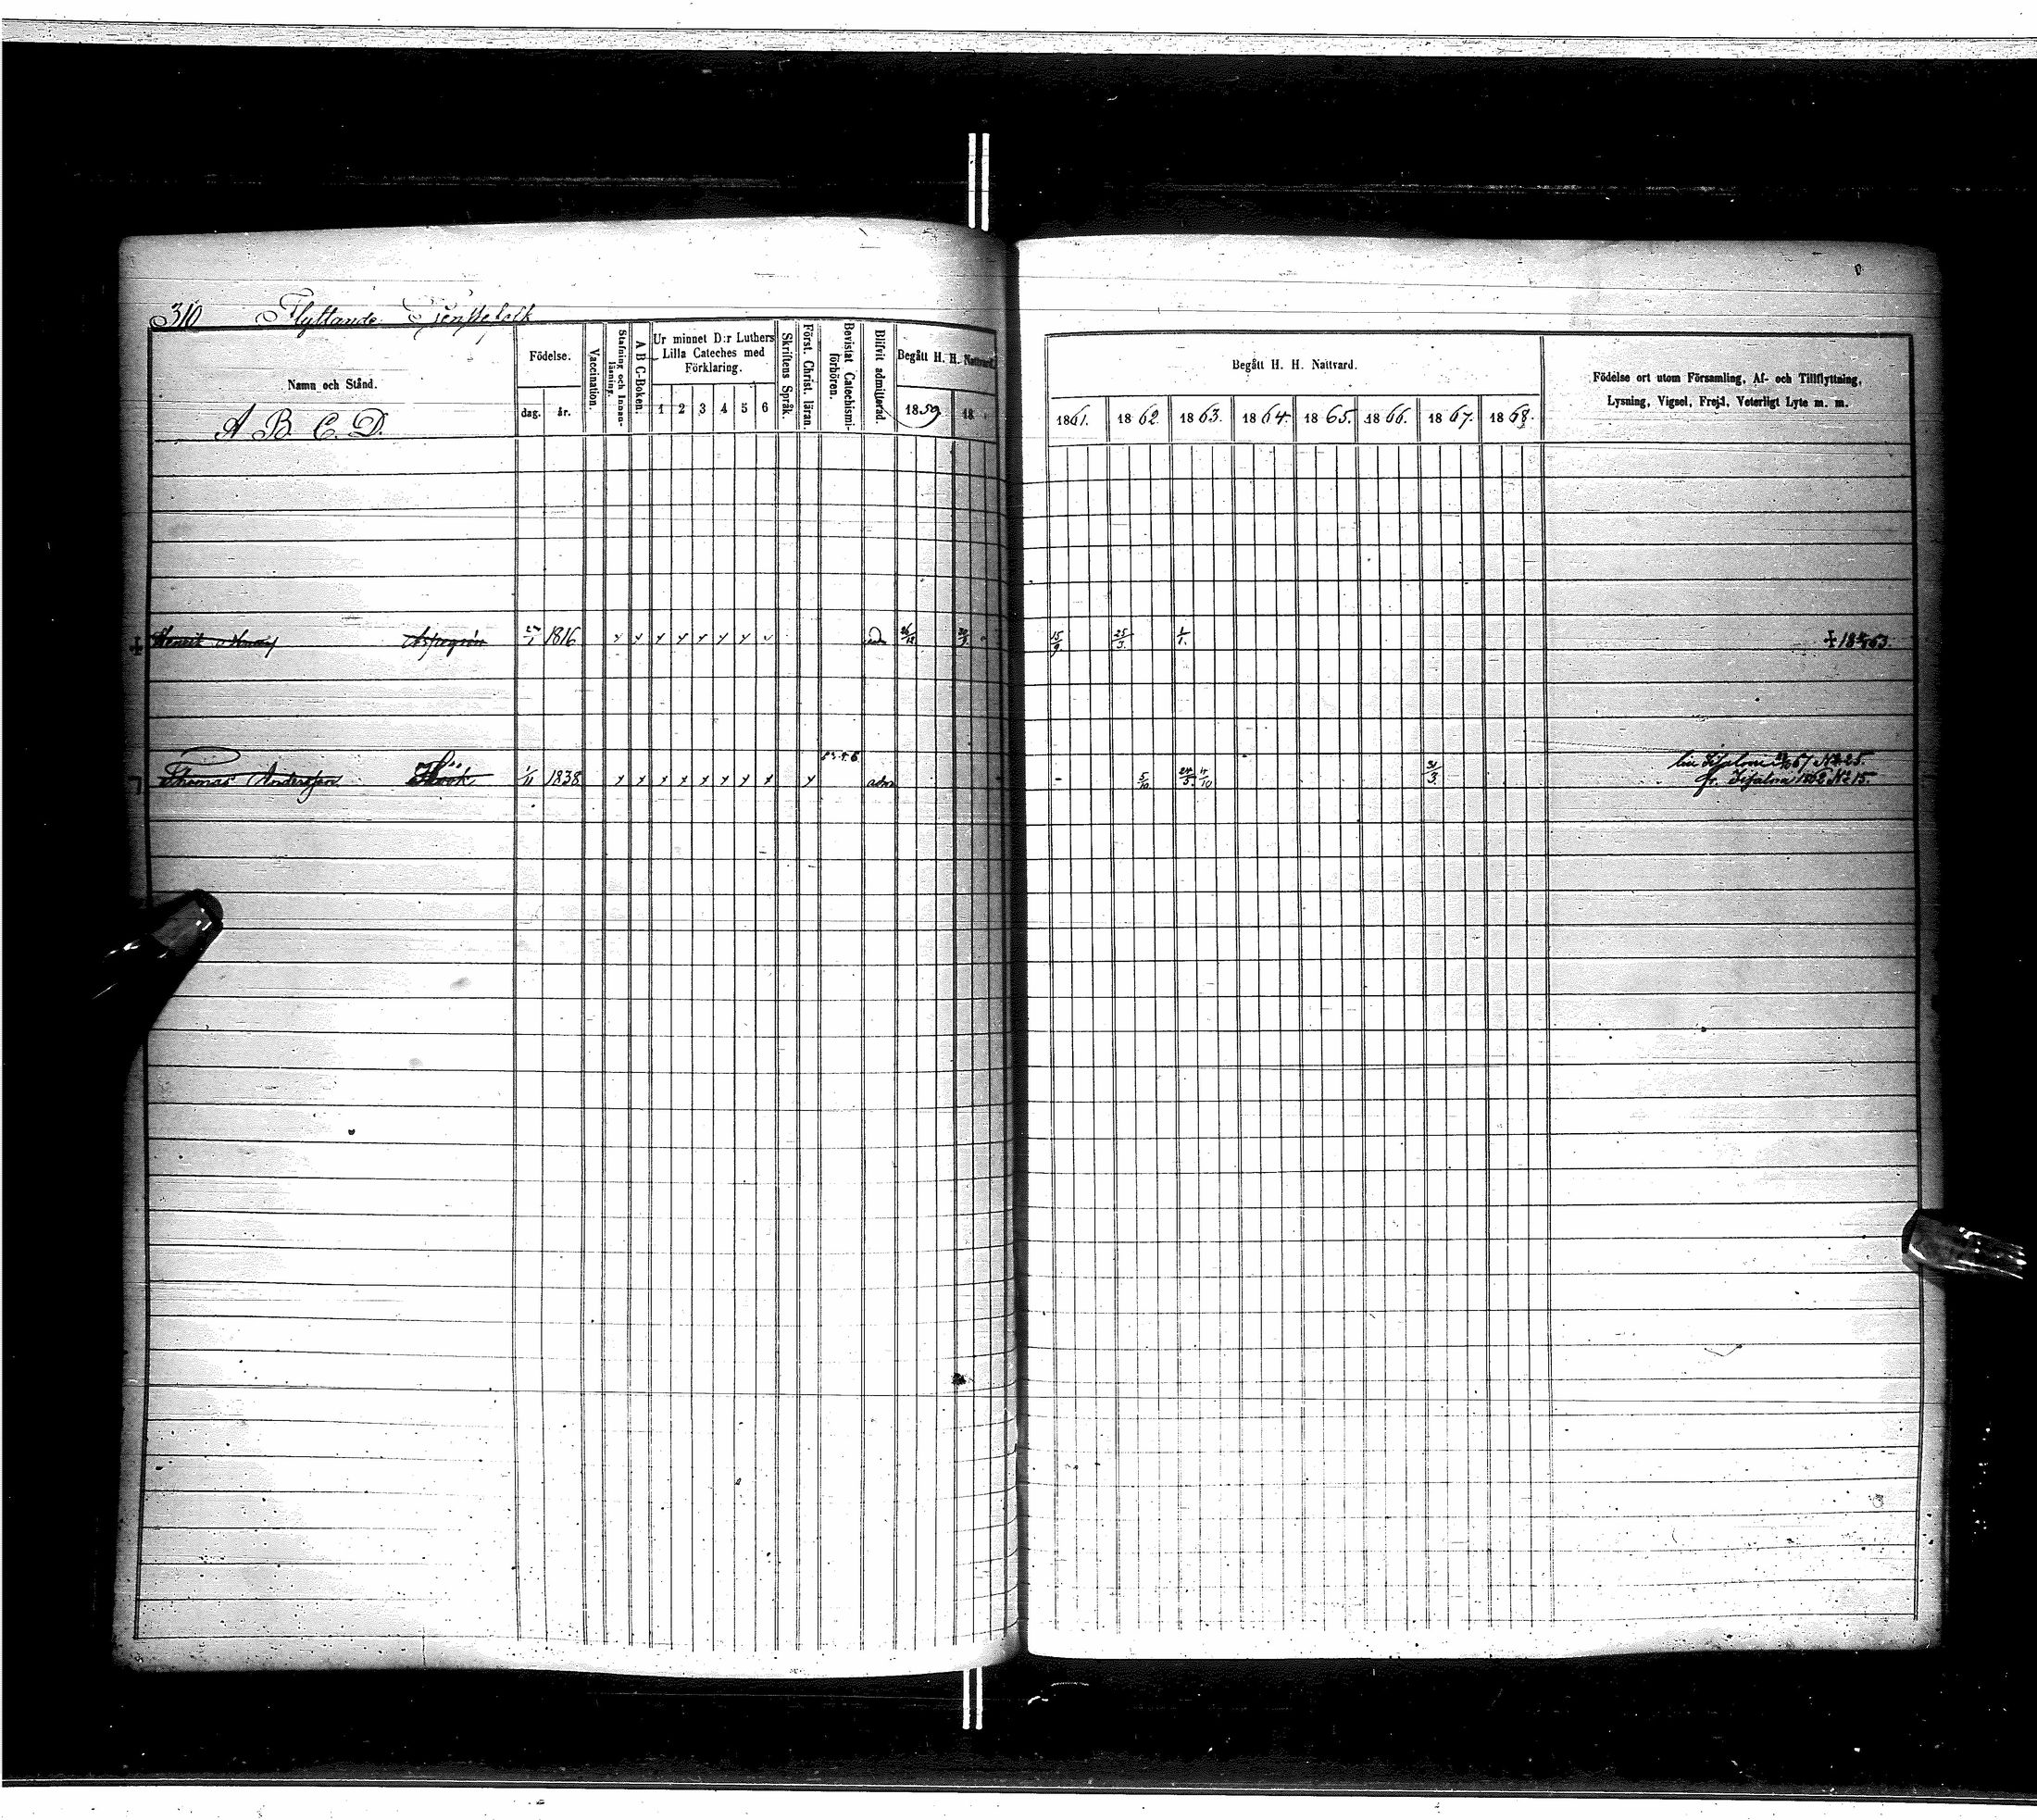 310 Flyttande Tjenstefolk
Namn och Stånd.
A B. C. D.
Födelse.
dag. år.
Vaccination.
Stafning och Innanläsning.
A B C-Boken.
Ur minnet D:r Luthers
Lilla Cateches med
Förklaring.
1 2 3 4 5 6
Skriftens Språk.
Först. Christ. läran.
Bevistat Catechismi-
förhören.
Blifvit admitterad.
Begått H. H. Nattvard.
1859 18
Begått H. H. Nattvard.
1861. 1862. 1863. 1864. 1865. 1866. 1867. 1868.
Födelse ort utom Församling, Af- och Tillflyttning,
Lysning, Vigsel, Frejd, Veterligt Lyte m. m.
Henrik 1816 15/9 25/3 1/1
Thomas Andersson Höök 1/11 1838 adm 5/10 24/5 4/10 31/3
67 No 25.
fr. 1862 No 15.